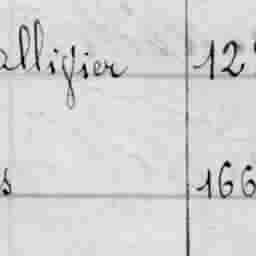 alligier 12
s 166